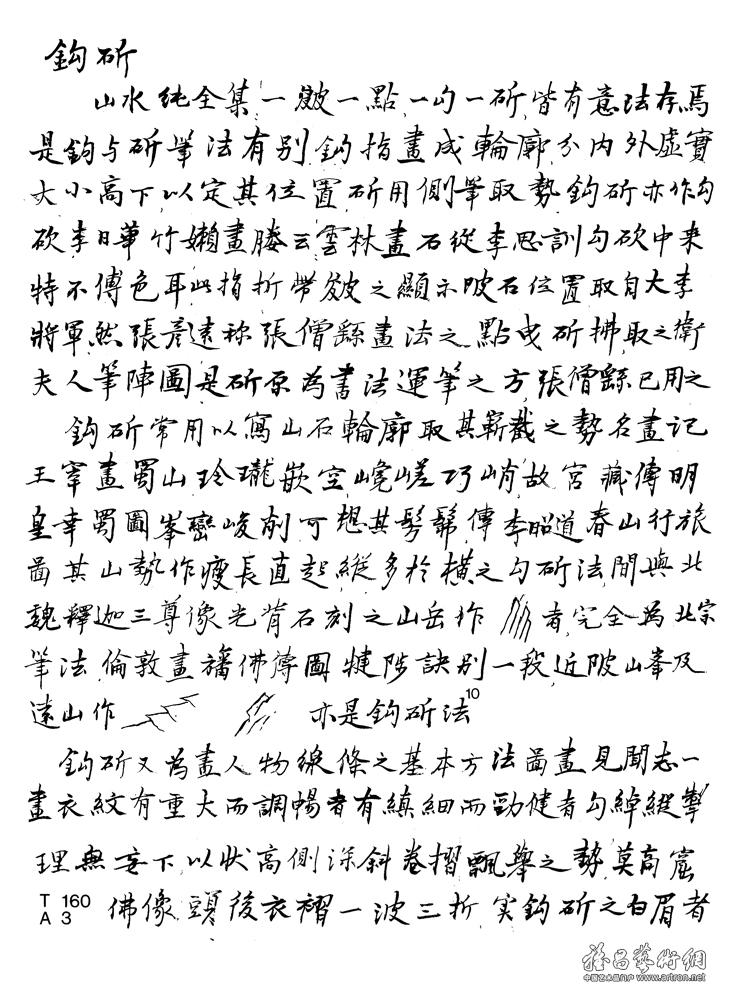 鈎斫
山水純全集一皴一點一勾一斫皆有意法存焉
是鈎与斫筆法有別鈎指畫成輪廓分內外虛實
大小高下以定其位置斫用側筆取勢鈎斫亦作勾
砍李日華竹嬾畫媵云雲林畫石從李思訓勾砍中来
特不傅色耳此指折帶皴之顯示陂石位置取自大李
將軍然張彥遠称張僧繇畫法之點曳斫拂取之衛
夫人筆陣圖是斫原為書法運筆之方張僧繇已用之
鈎斫常用以寫山石輪廓取其嶄截之勢名畫記
王宰畫蜀山玲瓏嵌空巉嵯巧峭故宮藏傳明
皇幸蜀圖峯巒峻削可想其髣髴傳李昭道春山行旅
啚其山勢作瘦長直起縱多於橫之勾斫法間與北
魏釋迦三尊像光背石刻之山岳作 者完全為北宗
筆法倫敦畫旛佛傳圖犍陟訣別一段近陂山峯及
遠山作 亦是鈎斫法10
鈎斫又為畫人物線條之基本方法啚畫見聞志一
畫衣紋有重大而調暢者有縝細而勁健者勾綽縱掣
理無妄下以狀高側深斜卷摺飄舉之勢莫高窟
TA 160 3 佛像頭後衣褶一波三折实鈎斫之白眉者
雅昌藝術網
中国艺术品门户 www.artron.net